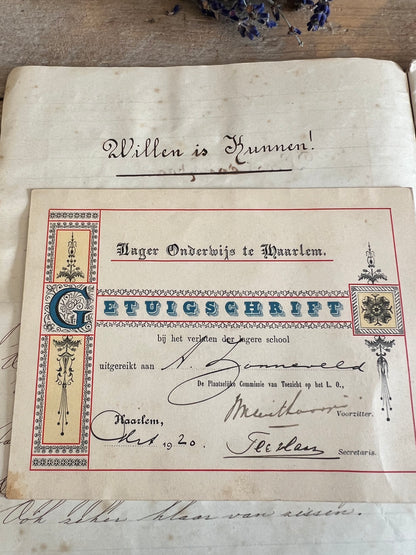 Willen is Kunnen!
Lager Onderwijs te Haarlem.
GETUIGSCHRIFT
bij het verlaten der lagere school
uitgereikt aan A. Zonneveld
De Plaatselijke Commissie van Toezicht op het L. O.,
Voorzitter.
Haarlem,
1920.
Secretaris.
Ook zeker klaar van